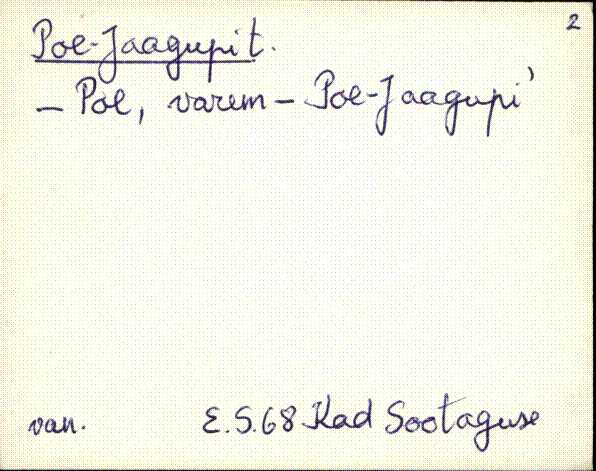 2
Poe-Jaagupit.
– Poe, varem – Poe-Jaagupi'
van. E.S.68 Kad Sootaguse